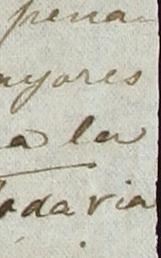 pena
ayores
a la
todavia